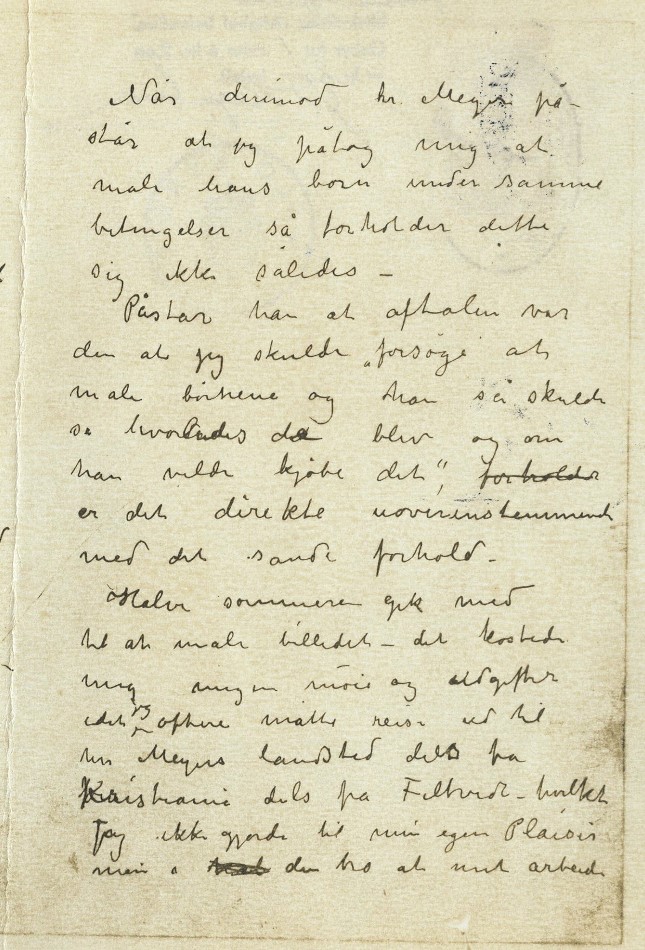 Når derimod hr. Meyer på-
står at jeg påtog mig at
male hans børn under samme
betingelser så forholder dette
sig ikke således –
Påstar han at aftalen var
den at jeg skulde „forsøge at
male børnene og han så skulde
se hvorledes de blev og om
han vilde kjøbe det“, forholder
er det direkte uoverensstemmende
med det sande forhold –
Halve sommeren gik med
til at male billedet – det kostede
mig megen møie og udgifter
idet jeg oftere måtte reise ud til
hr Meyers landsted dels fra
Kristiania dels fra Filtvedt – hvilket
jeg ikke gjorde til min egen Plaisir
men i den tro at mit arbeide